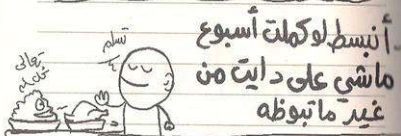 أنبسط لو كملت أسبوع
ماشي على دايت من
غير ما تبوظه
تسلم
تعالى